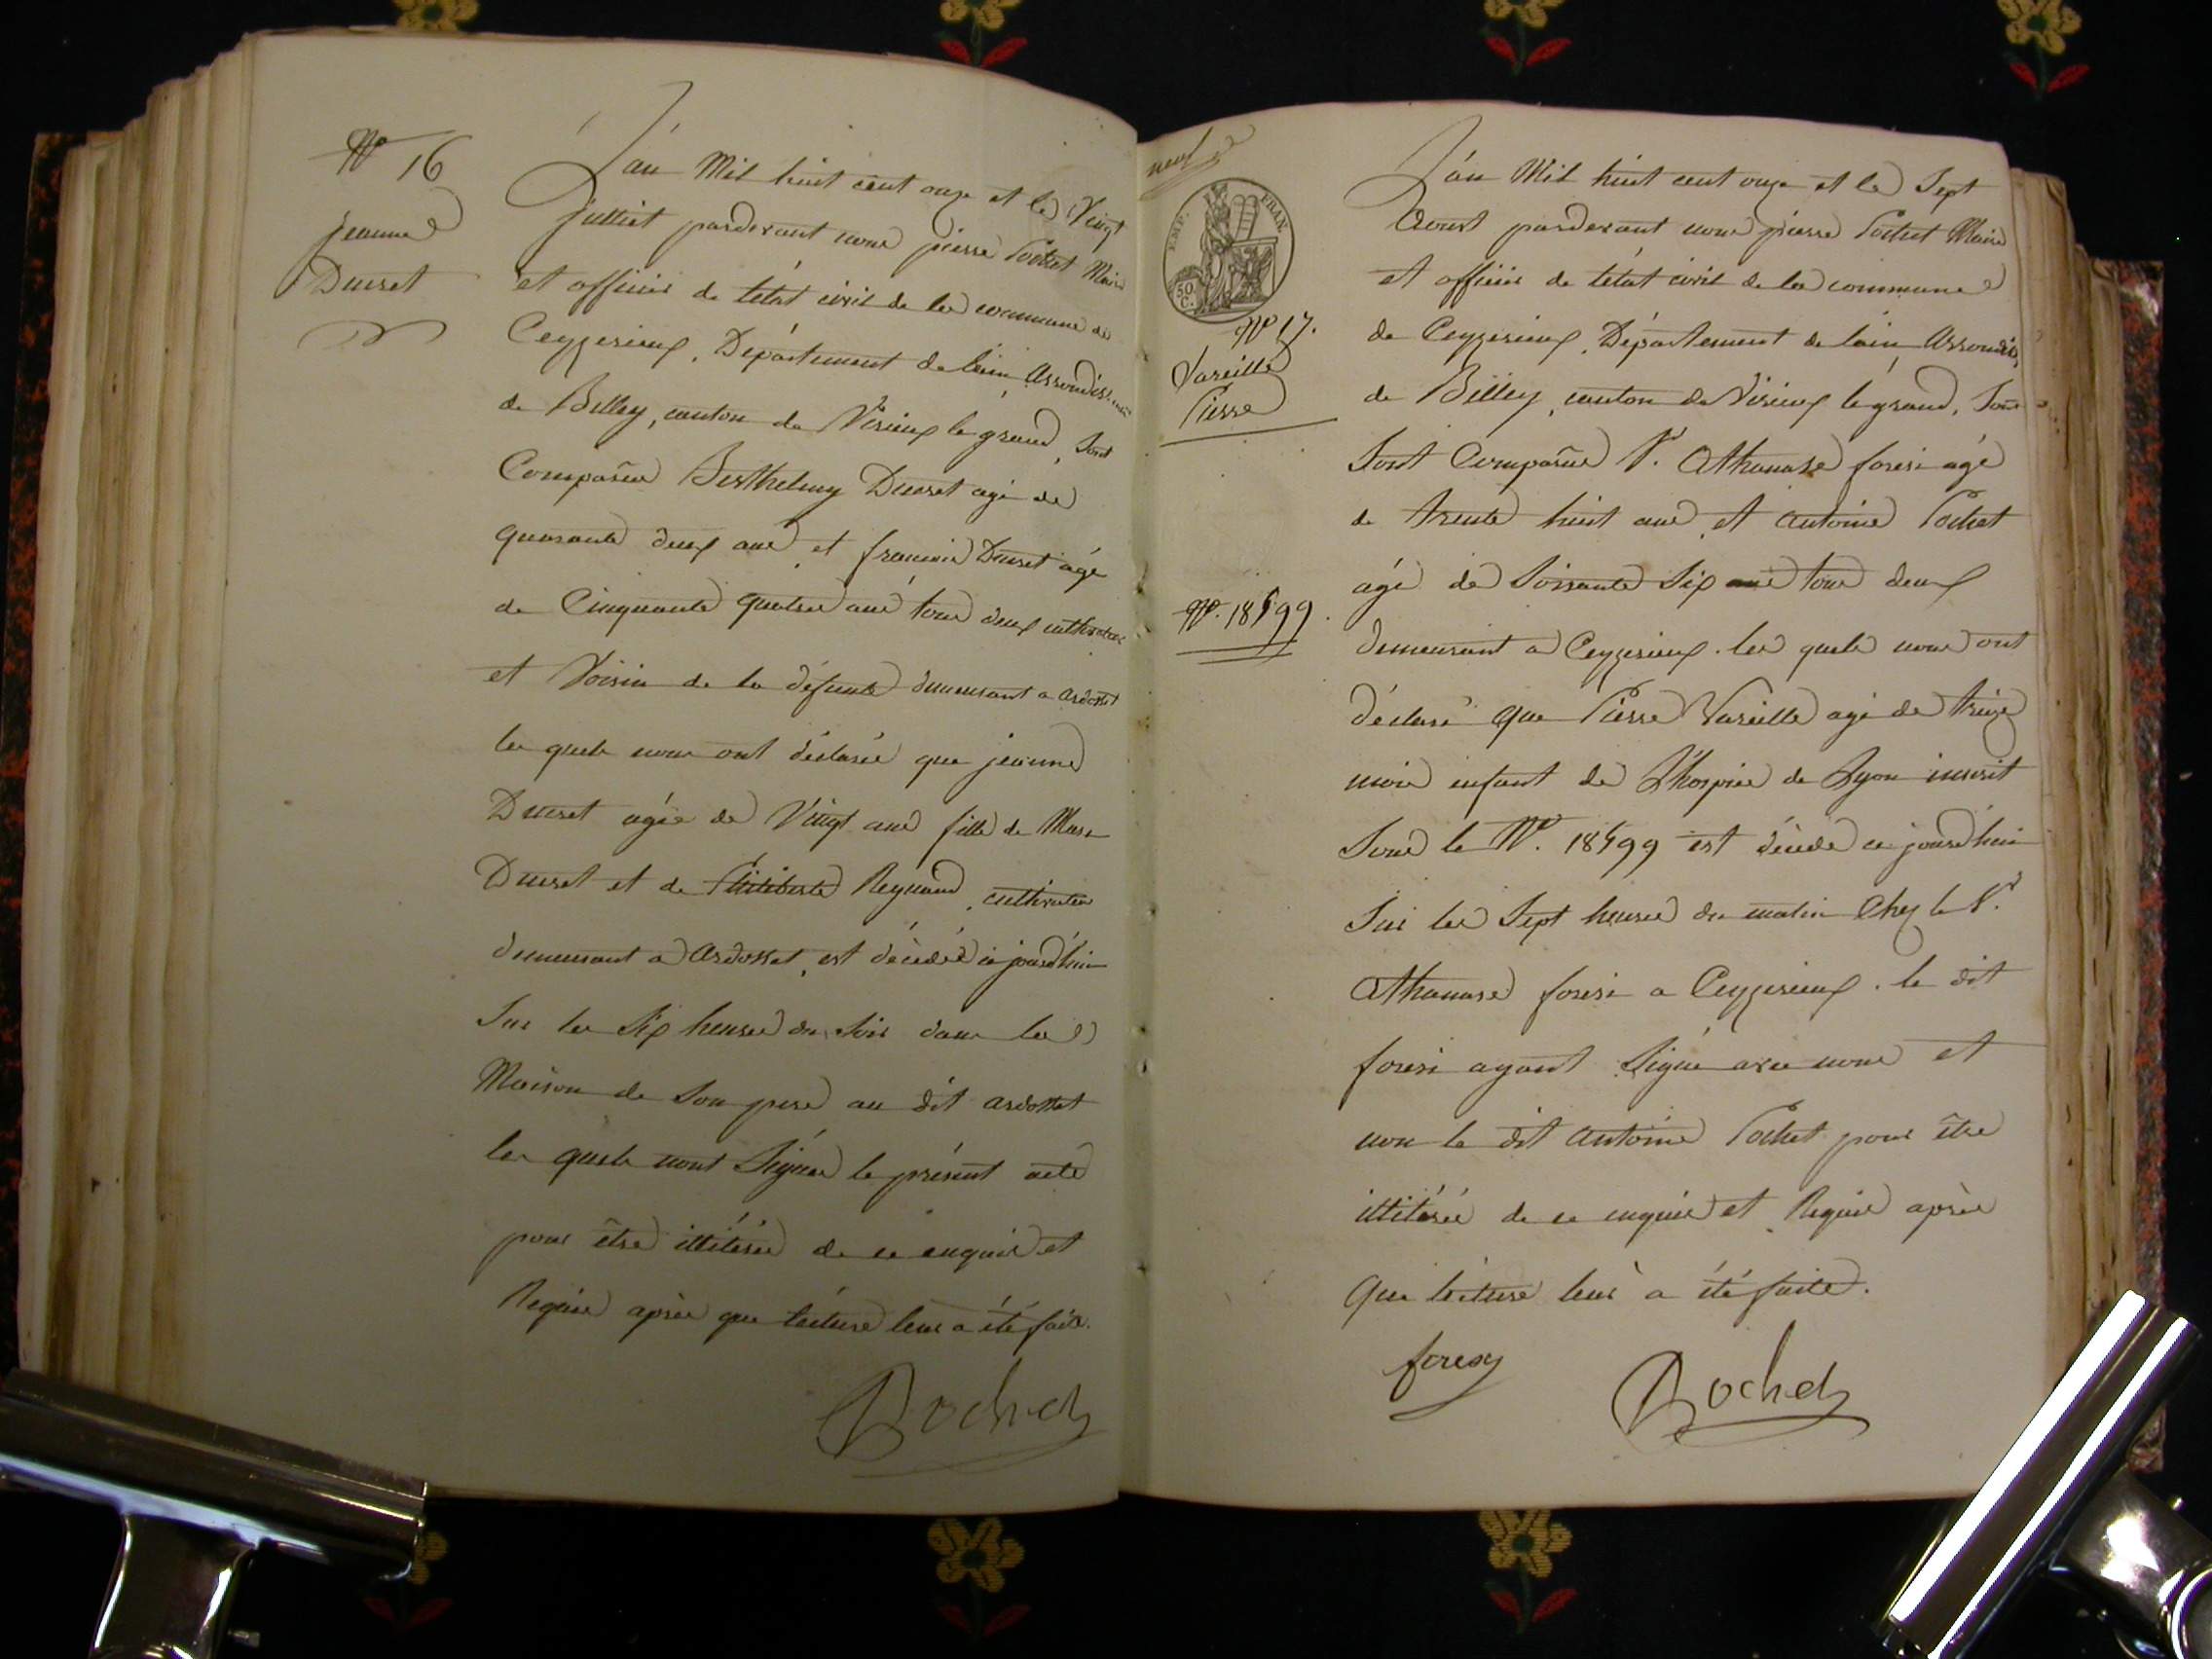 N° 16
jeanne
Ducret
L'an Mil huit cent onze et le Vingt
juilliet pardevant nous pierre Pochet Maire
et officier de l'état civil de la commune de
Ceyzerieux, Département de l'ain, Arrondissement
de Billey, canton de Virieux le grand, Sont
Comparûs Berthelmy Ducret agé de
quarante deux ans, et francois Ducret agé
de Cinquante quatre ans tous deux cultivateurs
et Voisin de la défunte demeurant a ardosset
les quels nous ont déclarés que jeanne
Ducret agée de Vingt ans fille de Marc
Ducret et de Philiberte Reynaud, cultivateur
demeurant a Ardosset, est décédée ce jourd'hui
Sur les Six heures du Soir dans la
Maison de Son pere au dit ardosset
les quels n'ont Signés le présent acte
pour être illitérés de ce enquis et
Requis après que lecture leur a été faite.
Pochet
neuf
EMP. FRAN.
50. C.
N° 17.
Vareille
Pierre
N°. 18599.
L'an Mil huit cent onze et le Sept
Aoust pardevant nous pierre Pochet Maire
et officier de l'état civil de la commune
de Ceyzerieux, Département de l'ain, Arrondis.
de Billey, canton de Virieux le grand,
Sont Comparûs S. Athanase foresi agé
de trente huit ans, et antoine Pochet
agé de Soissante Six ans tous deux
demeurant a Ceyzerieux. les quels nous ont
déclaré que Pierre Vareille agé de treize
mois enfant de L'hospice de Lyon inscrit
Sous le N°. 18599 est décédé ce jourd'hui
Sur les Sept heures du matin Chez le S.r
Athanase foresi a Ceyzerieux. le dit
foresi ayant Signé avec nous et
non le dit antoine Pochet pour être
illitérés de ce enquis et Requis après
que lecture leur a été faite.
foresy
Pochet